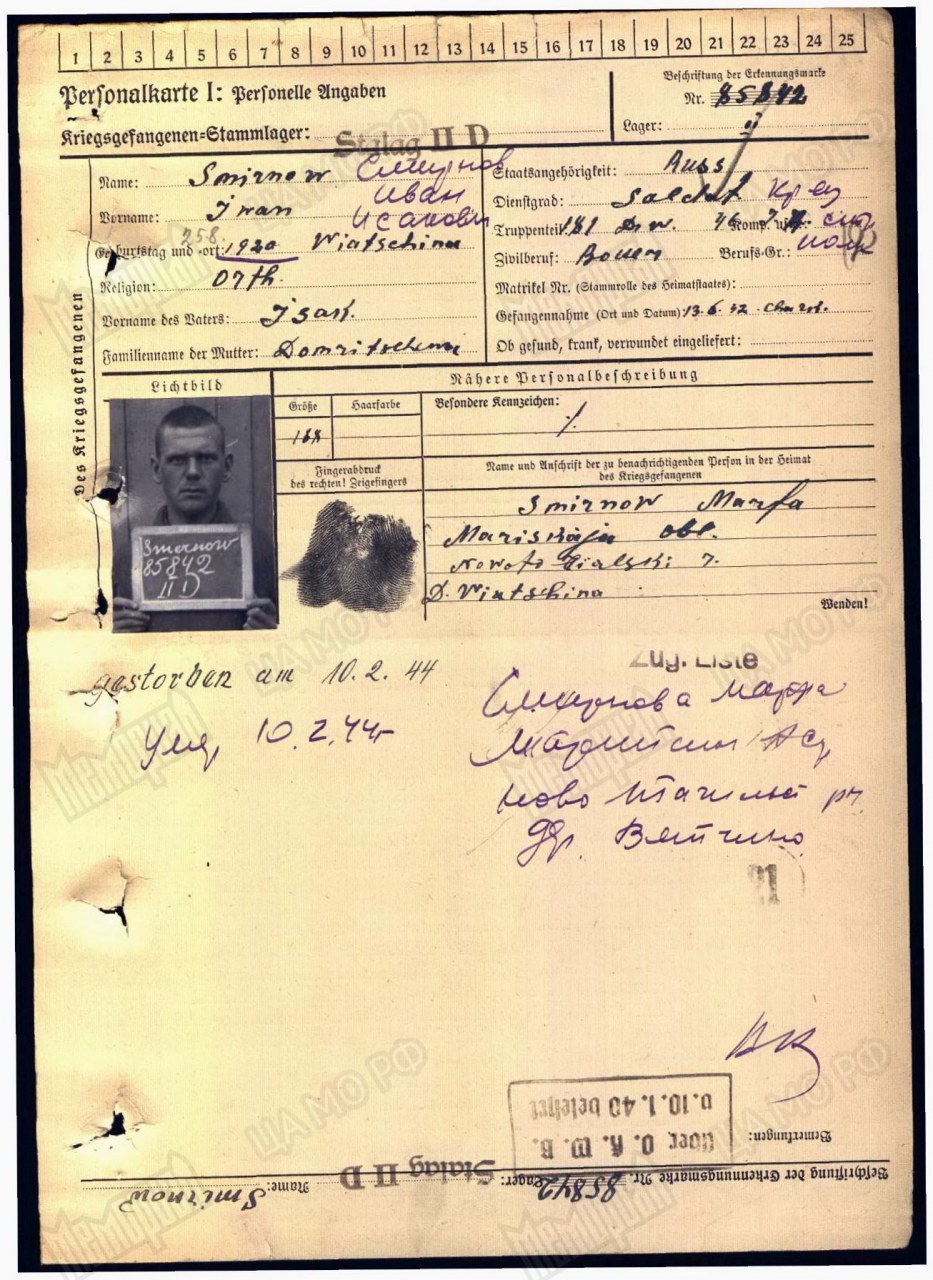 1 2 3 4 5 6 7 8 9 10 11 12 13 14 15 16 17 18 19 20 21 22 23 24 25
Personalkarte I: Personelle Angaben
Beschriftung der Erkennungsmarke
Nr. 85842
Kriegsgefangenen=Stammlager: Stalag II D
Lager:
Des Kriegsgefangenen
Name: Smirnow Смирнов
Иван
Vorname: Iwan Исакович
Geburtstag und -ort: 258 1920 Wiatschina
Religion: Orth.
Vorname des Vaters: Isak.
Familienname der Mutter:
Staatsangehörigkeit: Russ
Dienstgrad: Soldat
Truppenteil: 181 Komp. usw.:
Zivilberuf: Bauer Berufs-Gr.:
Matrikel Nr. (Stammrolle des Heimatstaates):
Gefangennahme (Ort und Datum): 13.6.42. Chark.
Ob gesund, krank, verwundet eingeliefert:
Lichtbild
Nähere Personalbeschreibung
Größe Haarfarbe Besondere Kennzeichen:
Fingerabdruck
des rechten! Zeigefingers
Name und Anschrift der zu benachrichtigenden Person in der Heimat
des Kriegsgefangenen
Smirnow Marfa
Mariskaja obl.
D. Wiatschina
Wenden!
Smernow
85842
II D
gestorben am 10.2.44
10.2.44
Zug. Liste
Смирнова Марфа
Ново
др. Вятчино
21
Bemerkungen:
über O. K. W. B.
v. 10.1.40 belehrt
Beschriftung der Erkennungsmarke Nr. 85842 Lager: Stalag II D Name: Smirnow
Мемориал
ЦАМО РФ